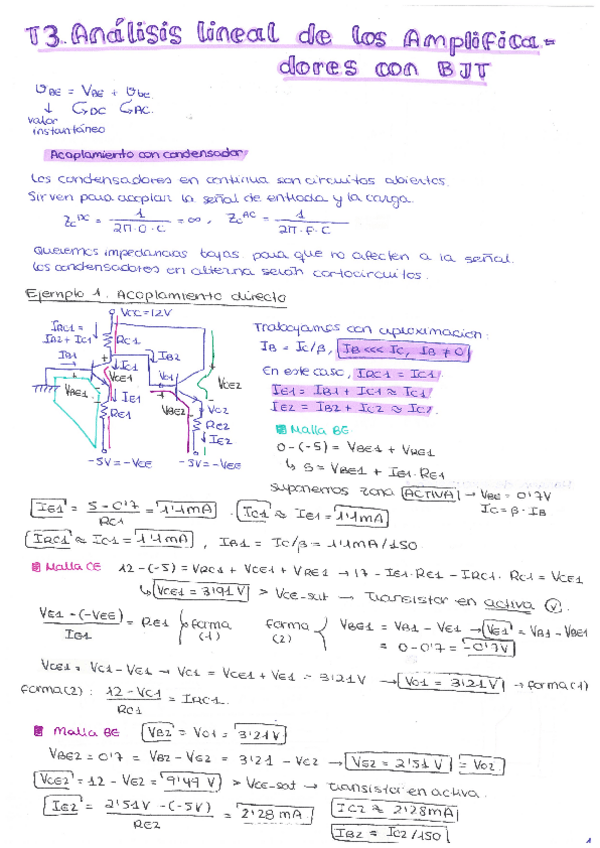 T3. Análisis lineal de los Amplifica-
dores con BJT
υBE = VBE + υbe
↓ ↪DC ↪AC.
valor
instantáneo
Acoplamiento con condensador
Los condensadores en continua son circuitos abiertos.
Sirven para acoplar la señal de entrada y la carga.
Zc^DC = 1/(2π·0·C) = ∞ , Zc^AC = 1/(2π·f·C)
Queremos impedancias bajas para que no afecten a la señal.
Los condensadores en alterna serán cortocircuitos.
Ejemplo 1. Acoplamiento directo
VCC=12V
IRC1 =
IB2 + IC1
RC1
IB1
IC1
IB2
VCE1
VO1
VCE2
VBE1
IE1
VBE2
VO2
RE1
RE2
IE2
-5V=-VEE
-5V=-VEE
Trabajamos con aproximación:
IB = IC/β, IB <<< IC, IB ≠ 0
En este caso, IRC1 = IC1
IE1 = IB1 + IC1 ≈ IC1
IE2 = IB2 + IC2 ≈ IC2.
Malla BE
0-(-5) = VBE1 + VRE1
↳ 5 = VBE1 + IE1·RE1
suponemos zona ACTIVA → VBE = 0'7V
IC = β·IB
IE1 = (5 - 0'7)/RC1 = 1'1mA . IC1 ≈ IE1 = 1'1mA
IRC1 ≈ IC1 = 1'1mA , IB1 = IC/β = 1'1mA/150
Malla CE 12-(-5) = VRC1 + VCE1 + VRE1 → 17 - IE1·RE1 - IRC1·RC1 = VCE1
↳ VCE1 = 3'91V > VCE-sat → Transistor en activa ✓.
(VE1 - (-VEE))/IE1 = RE1 forma (1) forma (2) VBE1 = VB1 - VE1 → VE1 = VB1 - VBE1
= 0 - 0'7 = -0'7V
VCE1 = VC1 - VE1 → VC1 = VCE1 + VE1 = 3'21V → VO1 = 3'21V → forma (1)
forma(2): (12 - VC1)/RC1 = IRC1.
Malla BE VB2 = VO1 = 3'21V
VBE2 = 0'7 = VB2 - VE2 = 3'21 - VE2 → VE2 = 2'51 V = VO2
VCE2 = 12 - VE2 = 9'49 V > VCE-sat → transistor en activa.
IE2 = (2'51V - (-5V))/RE2 = 2'28 mA. IC2 ≈ 2'28mA
IB2 = IC2/150